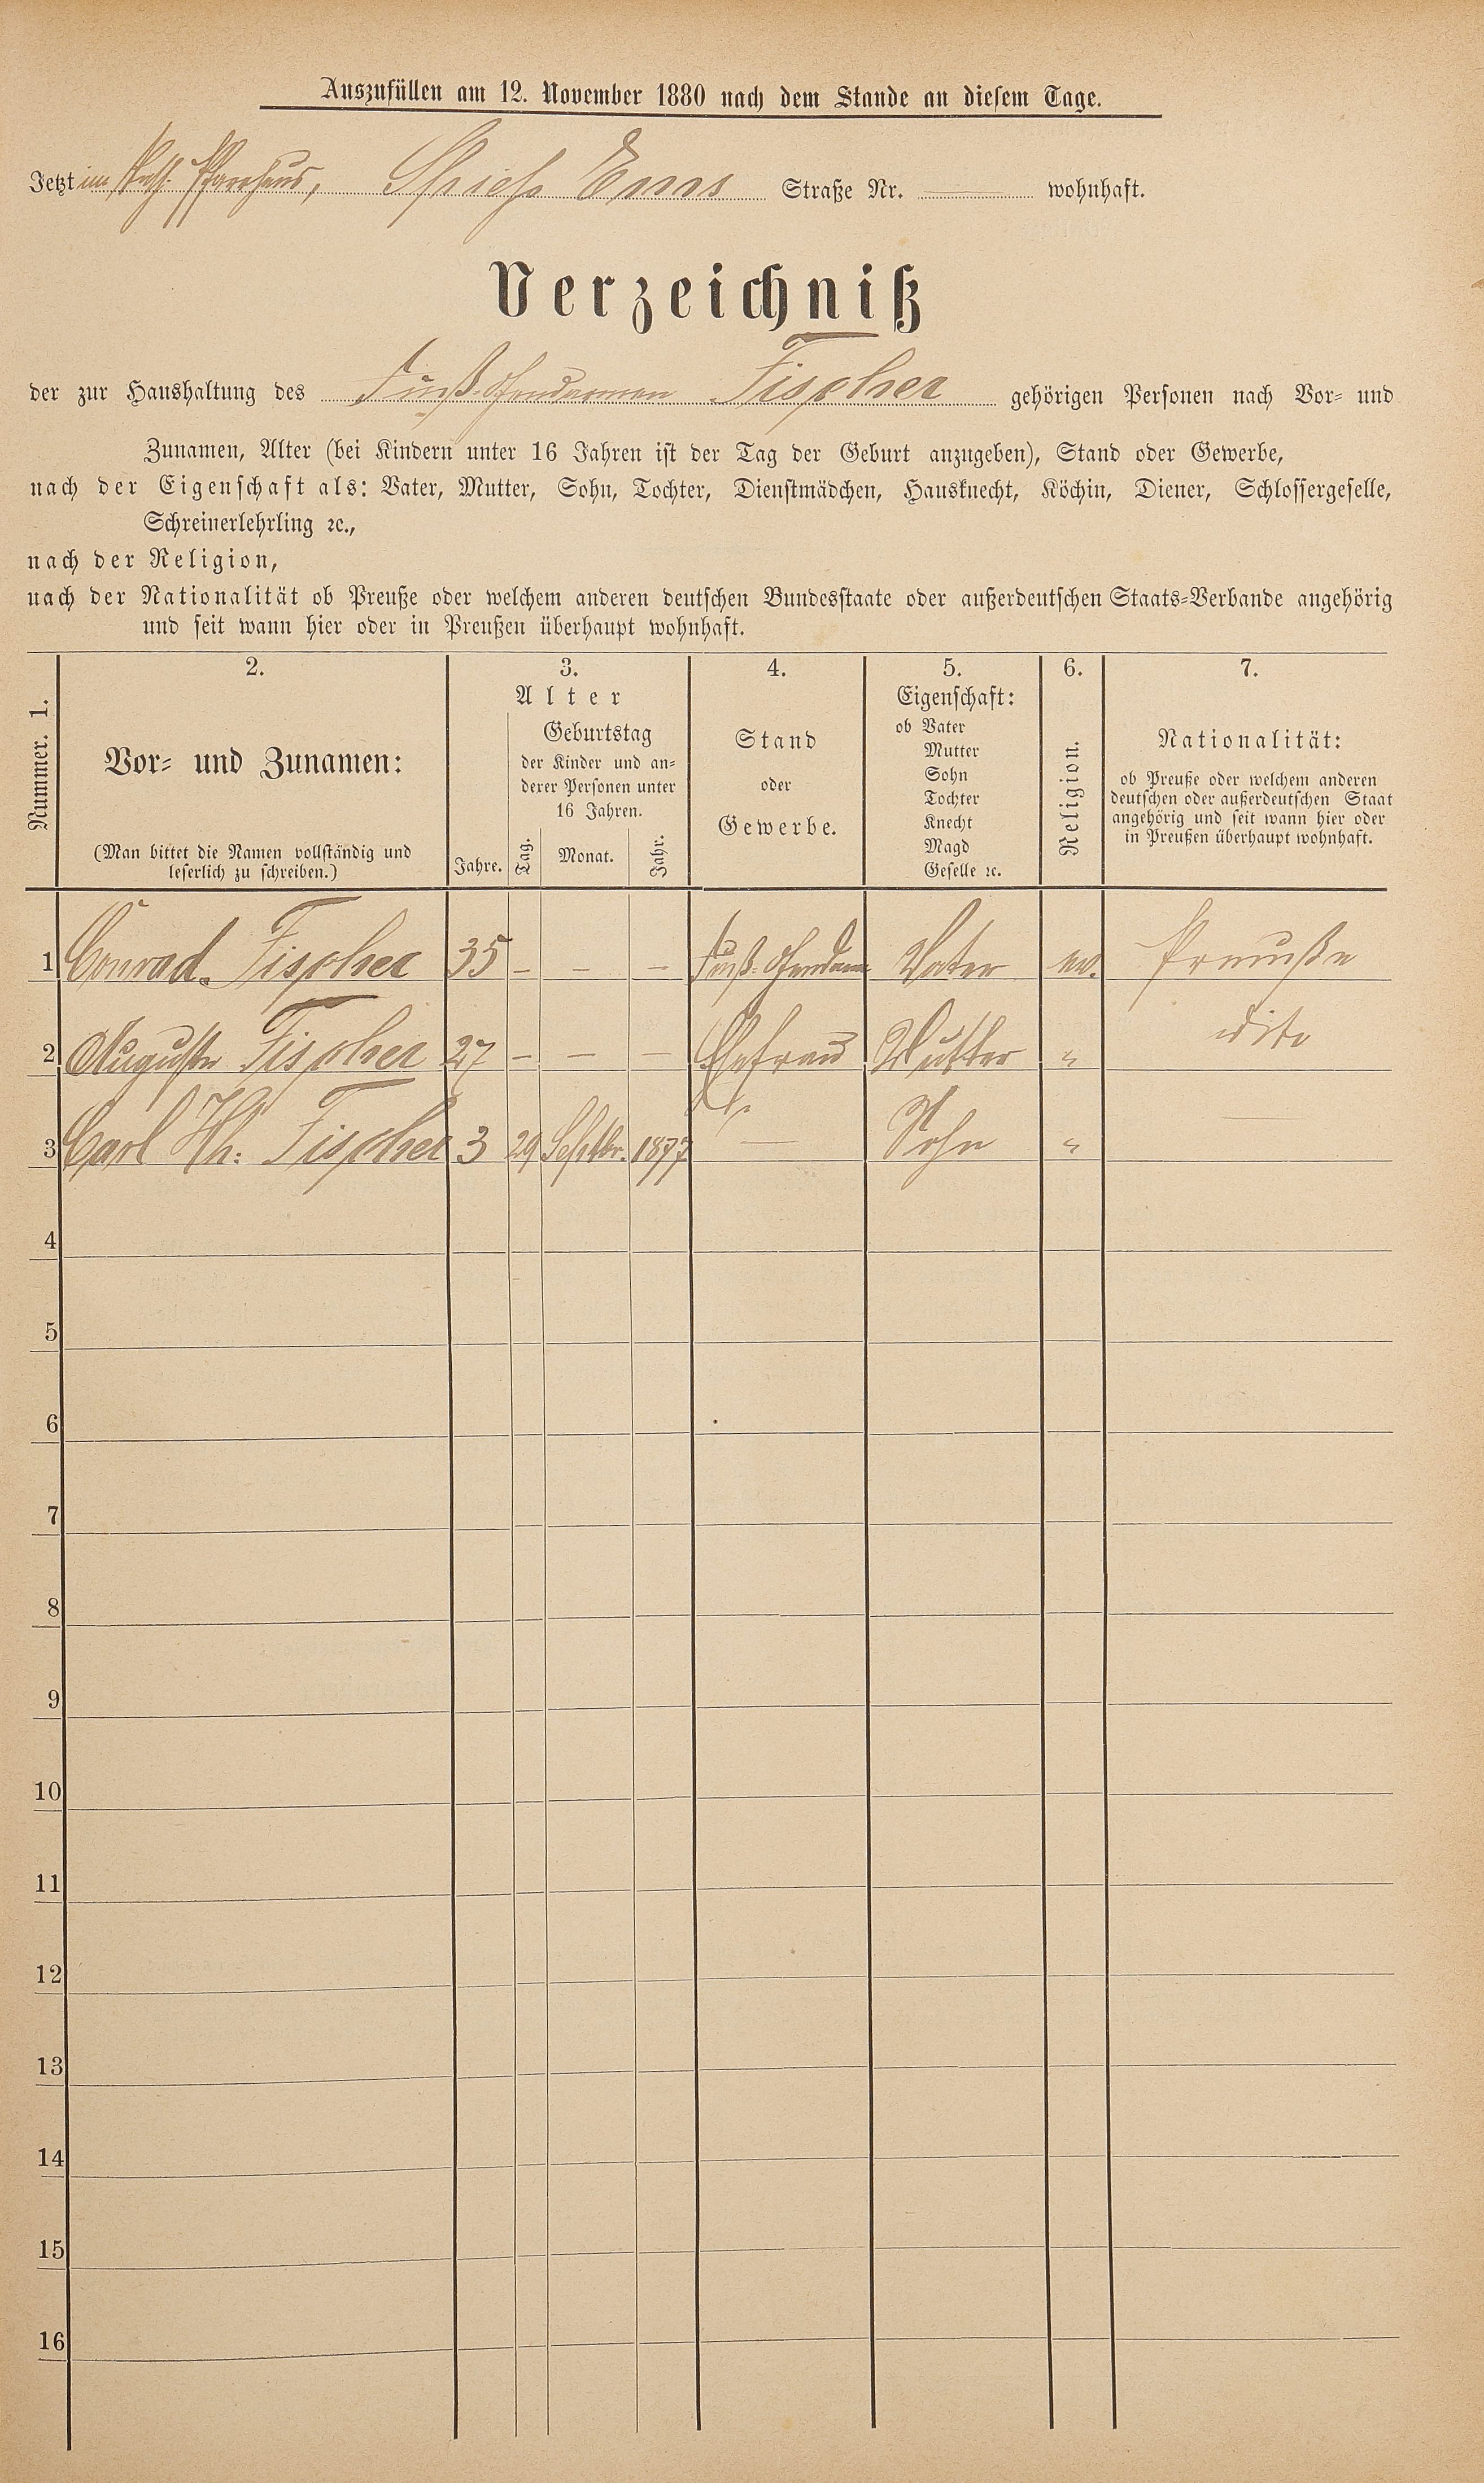 Auszufüllen am 12. November 1880 nach dem Stande an diesem Tage.
Jetzt im Kath. Pfarrhaus, Spieß Ems Straße Nr. — wohnhaft.
Verzeichniß
der zur Haushaltung des Fuß-Gendarmen Fischer gehörigen Personen nach Vor- und
Zunamen, Alter (bei Kindern unter 16 Jahren ist der Tag der Geburt anzugeben), Stand oder Gewerbe,
nach der Eigenschaft als: Vater, Mutter, Sohn, Tochter, Dienstmädchen, Hausknecht, Köchin, Diener, Schlossergeselle,
Schreinerlehrling ꝛc.,
nach der Religion,
nach der Nationalität ob Preuße oder welchem anderen deutschen Bundesstaate oder außerdeutschen Staats-Verbande angehörig
und seit wann hier oder in Preußen überhaupt wohnhaft.
Nummer. 1.
2.
Vor- und Zunamen:
(Man bittet die Namen vollständig und
leserlich zu schreiben.)
3.
Alter
Jahre.
Geburtstag
der Kinder und an-
derer Personen unter
16 Jahren.
Tag. Monat. Jahr.
4.
Stand
oder
Gewerbe.
5.
Eigenschaft:
ob Vater
Mutter
Sohn
Tochter
Knecht
Magd
Geselle ꝛc.
6.
Religion.
7.
Nationalität:
ob Preuße oder welchem anderen
deutschen oder außerdeutschen Staat
angehörig und seit wann hier oder
in Preußen überhaupt wohnhaft.
1 Conrad Fischer 35 – – – Fuß-Gendarm Vater ev. Preuße
2 Auguste Fischer 27 – – – Ehefrau Mutter " dito
3 Carl Fischer 3 29 Septbr. 1877 — Sohn " —
4
5
6
7
8
9
10
11
12
13
14
15
16